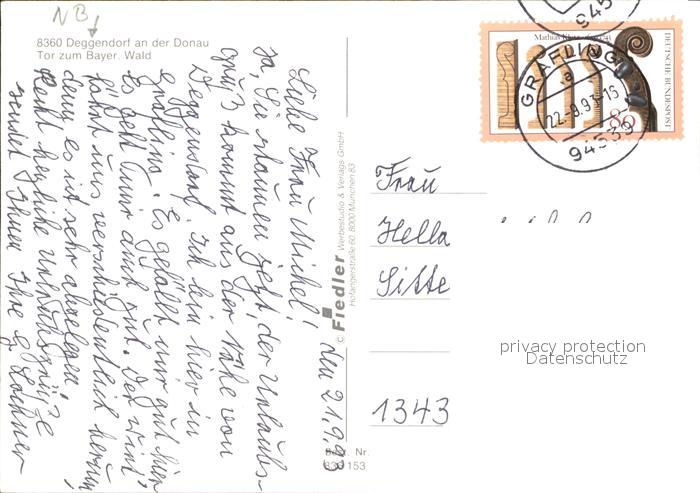 NB
8360 Deggendorf an der Donau
Tor zum Bayer. Wald
den 21.9.93
Liebe Frau Michel!
Ja, Sie staunen jetzt, der Urlaubs-
gruß kommt aus der Nähe von
Deggendorf. Ich bin hier in
Grafling. Es gefällt mir gut hier
Es geht mir auch gut. Der Wirt,
fährt uns verschiedentlich herum,
denn es ist sehr abgelegen
Recht herzliche Urlaubsgrüße
sendet Ihnen Ihre G. Lochner
© Fiedler Werbestudio & Verlags GmbH
Hofangerstraße 60, 8000 München 83
Best. Nr.
153
DEUTSCHE BUNDESPOST
80
Mathias Klotz
GRAFLING
a
22.-9.93-16
94539
945
Frau
Hella
Sitte
1343
privacy protection
Datenschutz